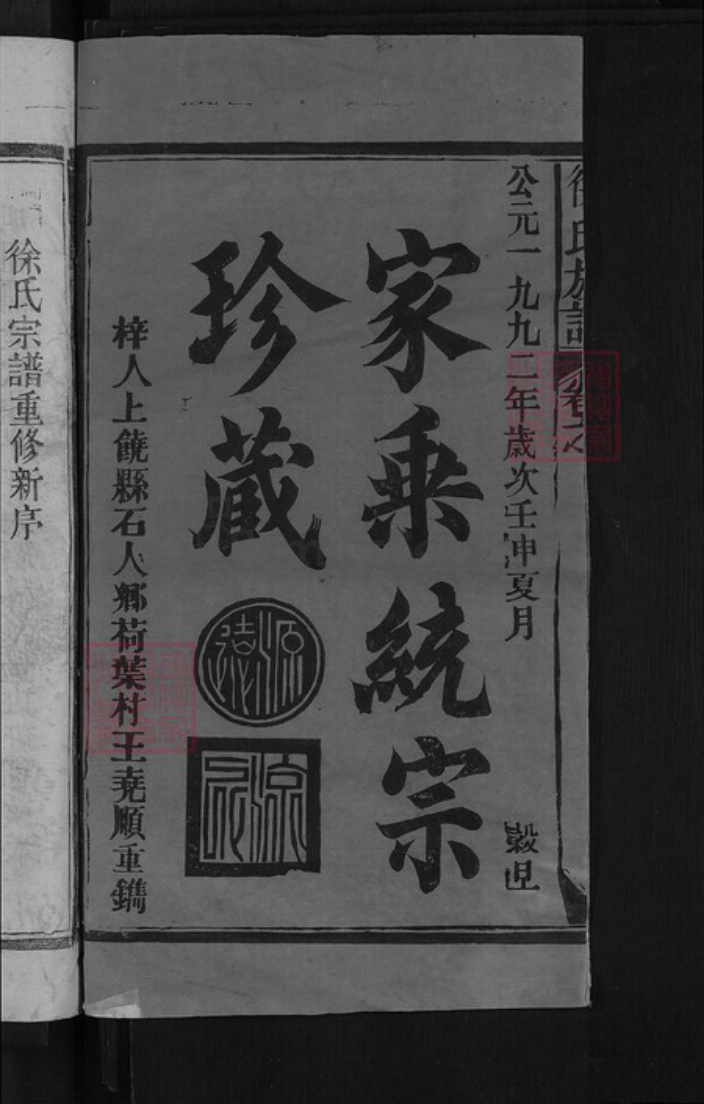 徐氏族譜
公元一九九二年歲次壬申夏月 穀旦
家乘統宗
珍藏
源遠
源
梓人上饒縣石人鄉荷葉村王堯順重鐫
徐氏宗譜重修新序